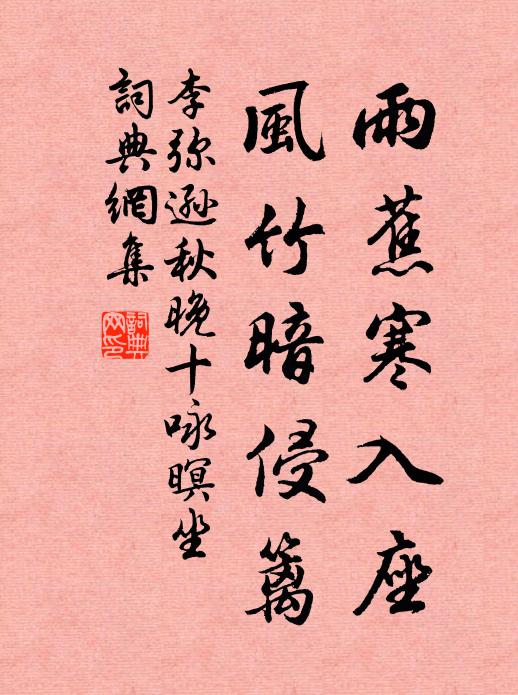 雨蕉寒入座
風竹暗侵籬
李弥遜秋晚十咏暝坐
詞典網集
詞典
网印